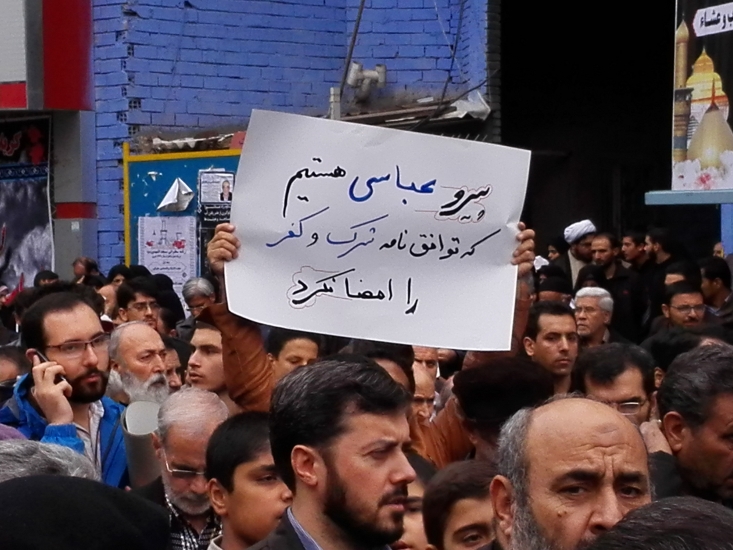 پیرو عباسی هستیم
که توافق نامه شرک و کفر
را امضا نکرد
ب و عشاء